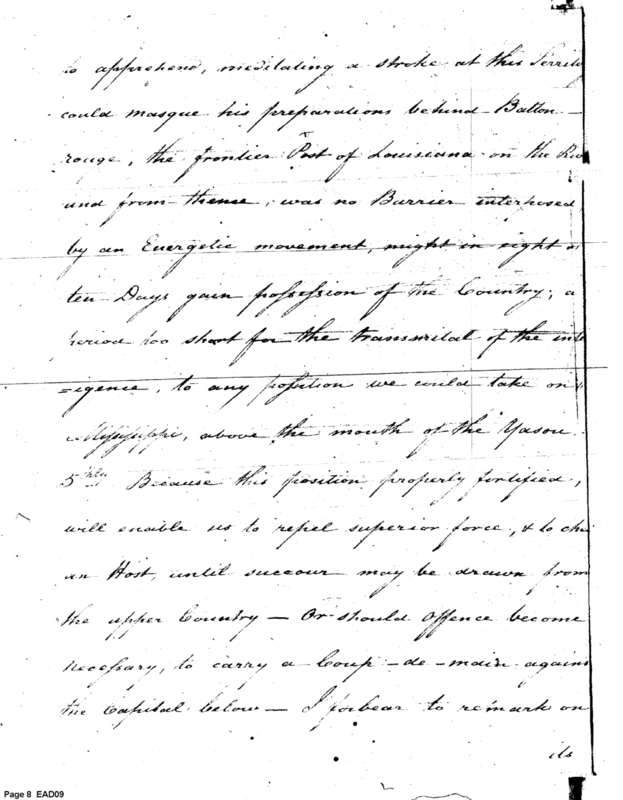 to apprehend, meditating a stroke at this Territ
could masque his preparations behind Batton-
rouge, the frontier Post of Louisiana on the Riv
and from thence, was no Barrier interposed,
by an Energetic movement, might in eight or
ten Days gain possession of the Country; a
period too short for the transmital of the inte
=igence, to any position we could take on
Mississippi, above the mouth of the Yasou.
5thly Because this position properly fortified,
will enable us to repel superior force, & to che
an Host, until succour may be drawn from
the upper Country – Or should Offence become
necessary, to carry a Coup-de-main agains
the Capital below – I forbear to remark on
its
Page 8 EAD09